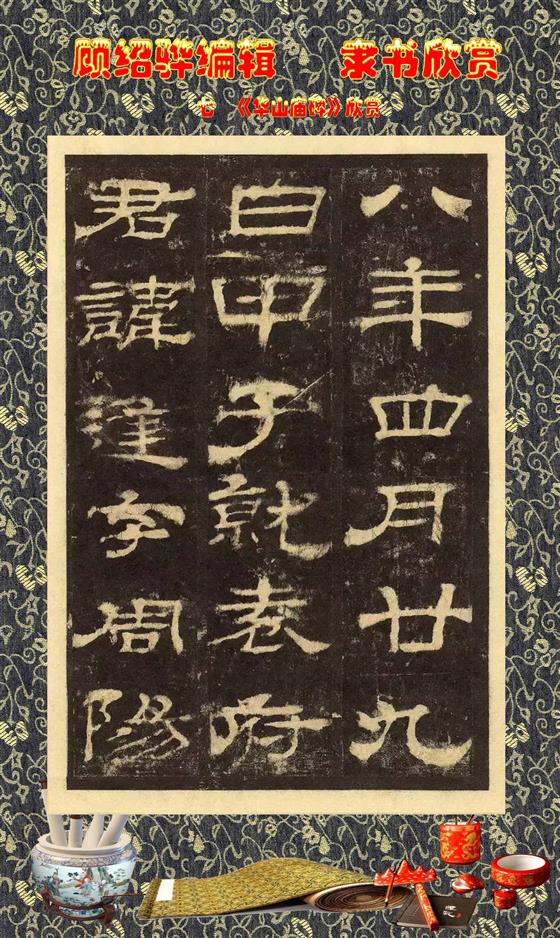 顾绍骅编辑 隶书欣赏
《华山庙碑》欣赏
八年四月廿九
日甲子就袁府
君諱逢字周陽